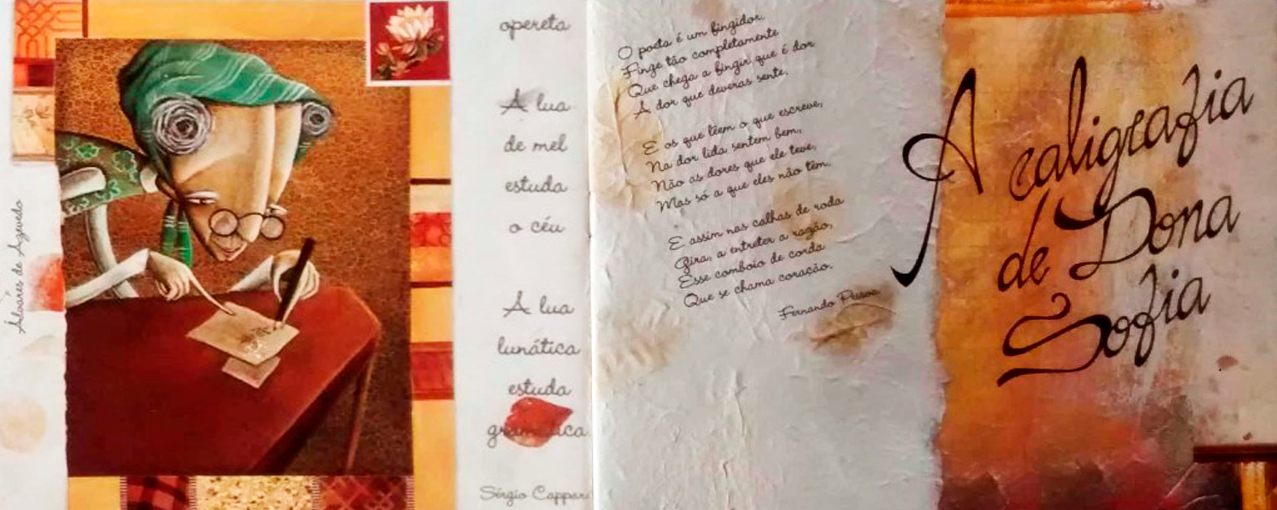 Álvares de Azevedo
opereta
A lua
de mel
estuda
o céu
A lua
lunática
estuda
gramática
Sérgio Cappar
O poeta é um fingidor.
Finge tão completamente
Que chega a fingir que é dor
A dor que deveras sente.
E os que lêem o que escreve,
Na dor lida sentem bem,
Não as dores que ele teve,
Mas só a que eles não têm.
E assim nas calhas de roda
Gira, a entreter a razão,
Esse comboio de corda
Que se chama coração.
Fernando Pessoa
A caligrafia
de Dona
Sofia